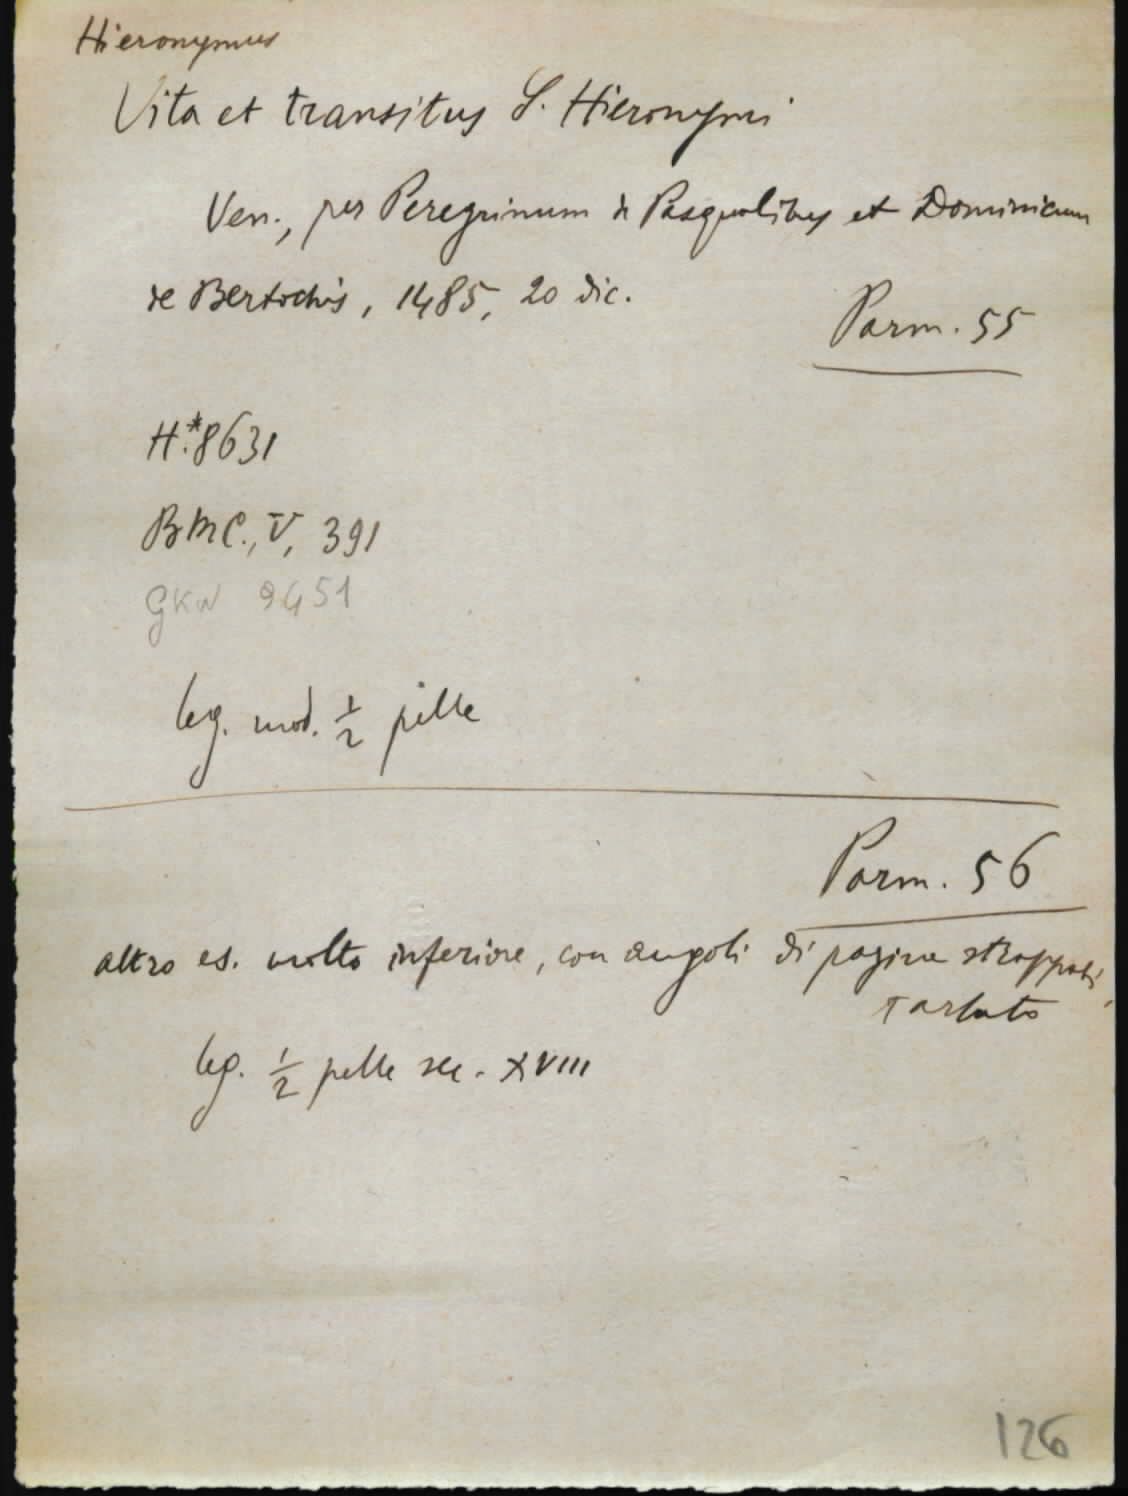 Hieronymus
Vita et transitus S. Hieronymi
Ven., per Peregrinum de Pasqualibus et Dominicum
de Bertochis, 1485, 20 dic.
Parm. 55
H.*8631
BMC., V, 391
GKW 9451
leg. mod. 1/2 pelle
Parm. 56
altro es. molto inferiore, con angoli di pagine strappati,
tarlato
leg. 1/2 pelle sec. XVIII
126